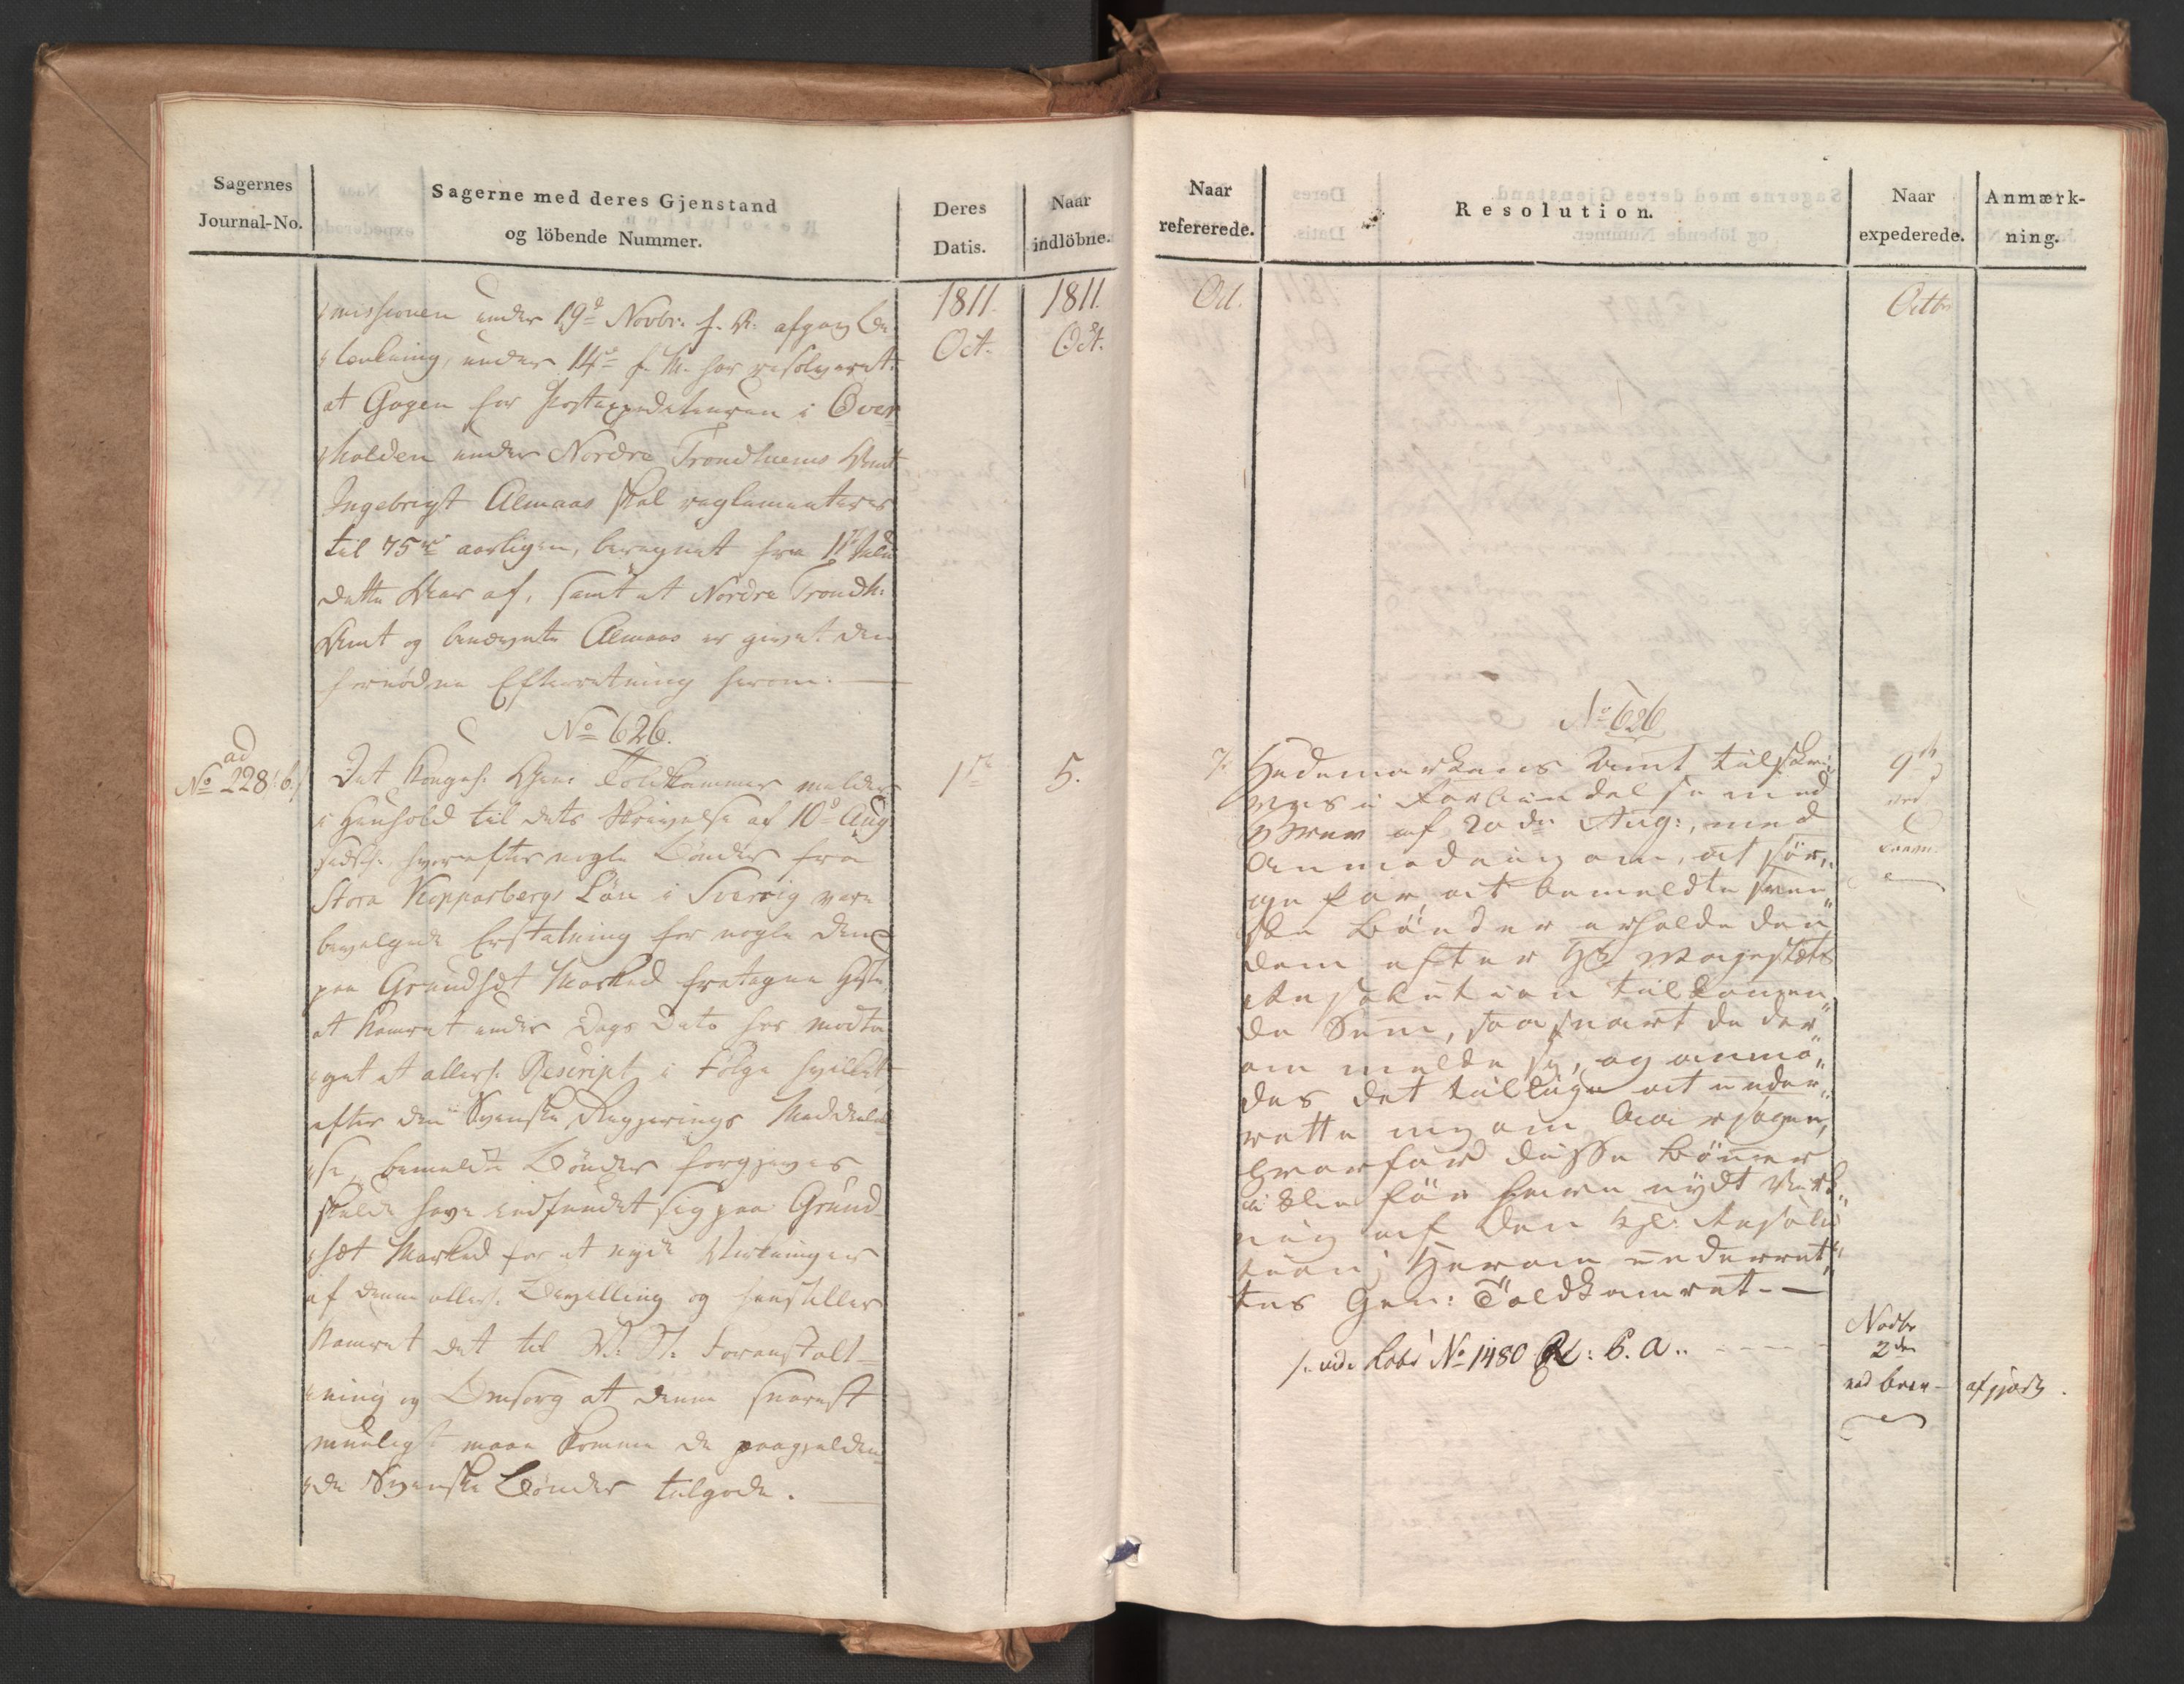 Sagernes
Journal-No.
Sagerne med deres Gjenstand
og löbende Nummer.
Deres
Datis.
Naar
indlöbne.
1811.
Oct.
1811.
Oct.
missionen under 19de Novbr. f. A. afgang Be-
tænkning, under 14de f. M. har resolveret:
at Gagen for Postexpediteuren i Over
halden under Nordre Trondhiems Amt
Ingebrigt Almaas skal reglementeres
til 75 rd aarligen, beregnet fra 1ste Juli
dette Aar af, samt at Nordre Trondh:
Amt og benævnte Almaas er givet den
fornødne Efterretning herom.
No 626.
ad
No 228. b.
Det Kongel. Gen: Toldkammer melder
1ste
5.
i Henhold til dets Skrivelse af 10de Aug
sidstl. hvorefter nogle Bönder fra
Stora Kopparbergs Län i Sverrig vare
bevilgede Erstatning for nogle dem
paa Grundset Marked fratagne Heste,
at Kamret under Dags Dato har modta
get et allerh. Rescript i Følge hvilket
efter den Svenske Regjerings Meddelel
se, bemeldte Bönder forgjeves
skulde have indfundet sig paa Grund
set Marked for at nyde Virkninger
af denne allerh. Bevilling og henstiller
Kamret det til R. C. Foranstalt-
ning og Omsorg at denne snarest
mueligst maae komme de paagjelden
de Svenske Bönder tilgode.
Naar
refererede.
Resolution.
Naar
expederede.
Anmærk-
ning.
Oct.
Octbr
No 626
7.
Hedemarkens Amt tilskri
ves i Forbindelse med
Brev af 20de Aug:, med
Anmodning om, at sör
ge for, at bemeldte Sven
ske Bönder erholde den
dem efter Hs Majestæts
Resolution tilkommen
de Sum, saasnart de der
om melde sig, og anmo
des det tillige at under
rette mig om Aarsagen,
hvorfor disse Bönder
ikke før have nydt Virk
ning af den kgl. Resolu
tion; Herom underret
tes Gen: Toldkamret. —
9de
ved
Comm.
/: vid: Rube No 1480 R: C. A.
Novbr
2den
ved brev
afgjordt.